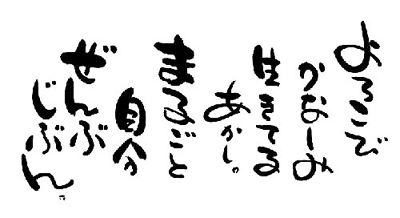 よろこび
かなしみ
生きてる
あかし。
まるごと
自分
ぜんぶ
じぶん。